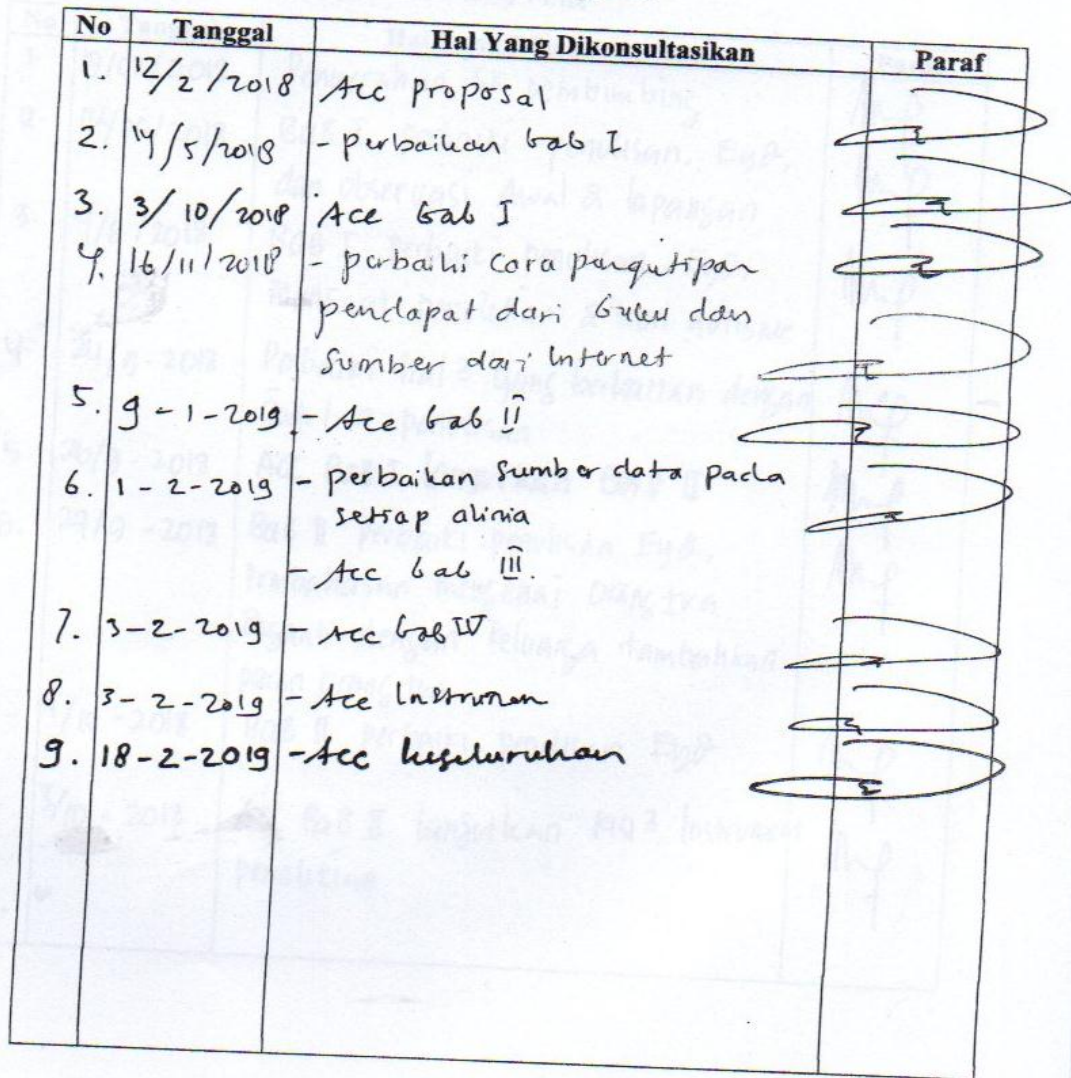 No Tanggal Hal Yang Dikonsultasikan Paraf
1. 12/2/2018 Acc proposal
2. 14/5/2018 - perbaikan bab I
3. 3/10/2018 Acc bab I
4. 16/11/2018 - perbaiki cara pengutipan
pendapat dari buku dan
Sumber dari Internet
5. 9-1-2019 - Acc bab II
6. 1-2-2019 - perbaikan sumber data pada
setiap alinia
- Acc bab III.
7. 3-2-2019 - Acc bab IV
8. 3-2-2019 - Acc Instrumen
9. 18-2-2019 - Acc keseluruhan